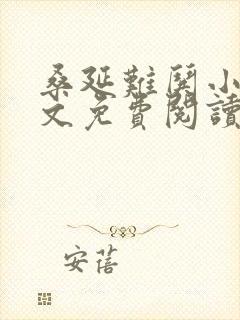 桑延難鬨小
文免費閱讀
安蓓